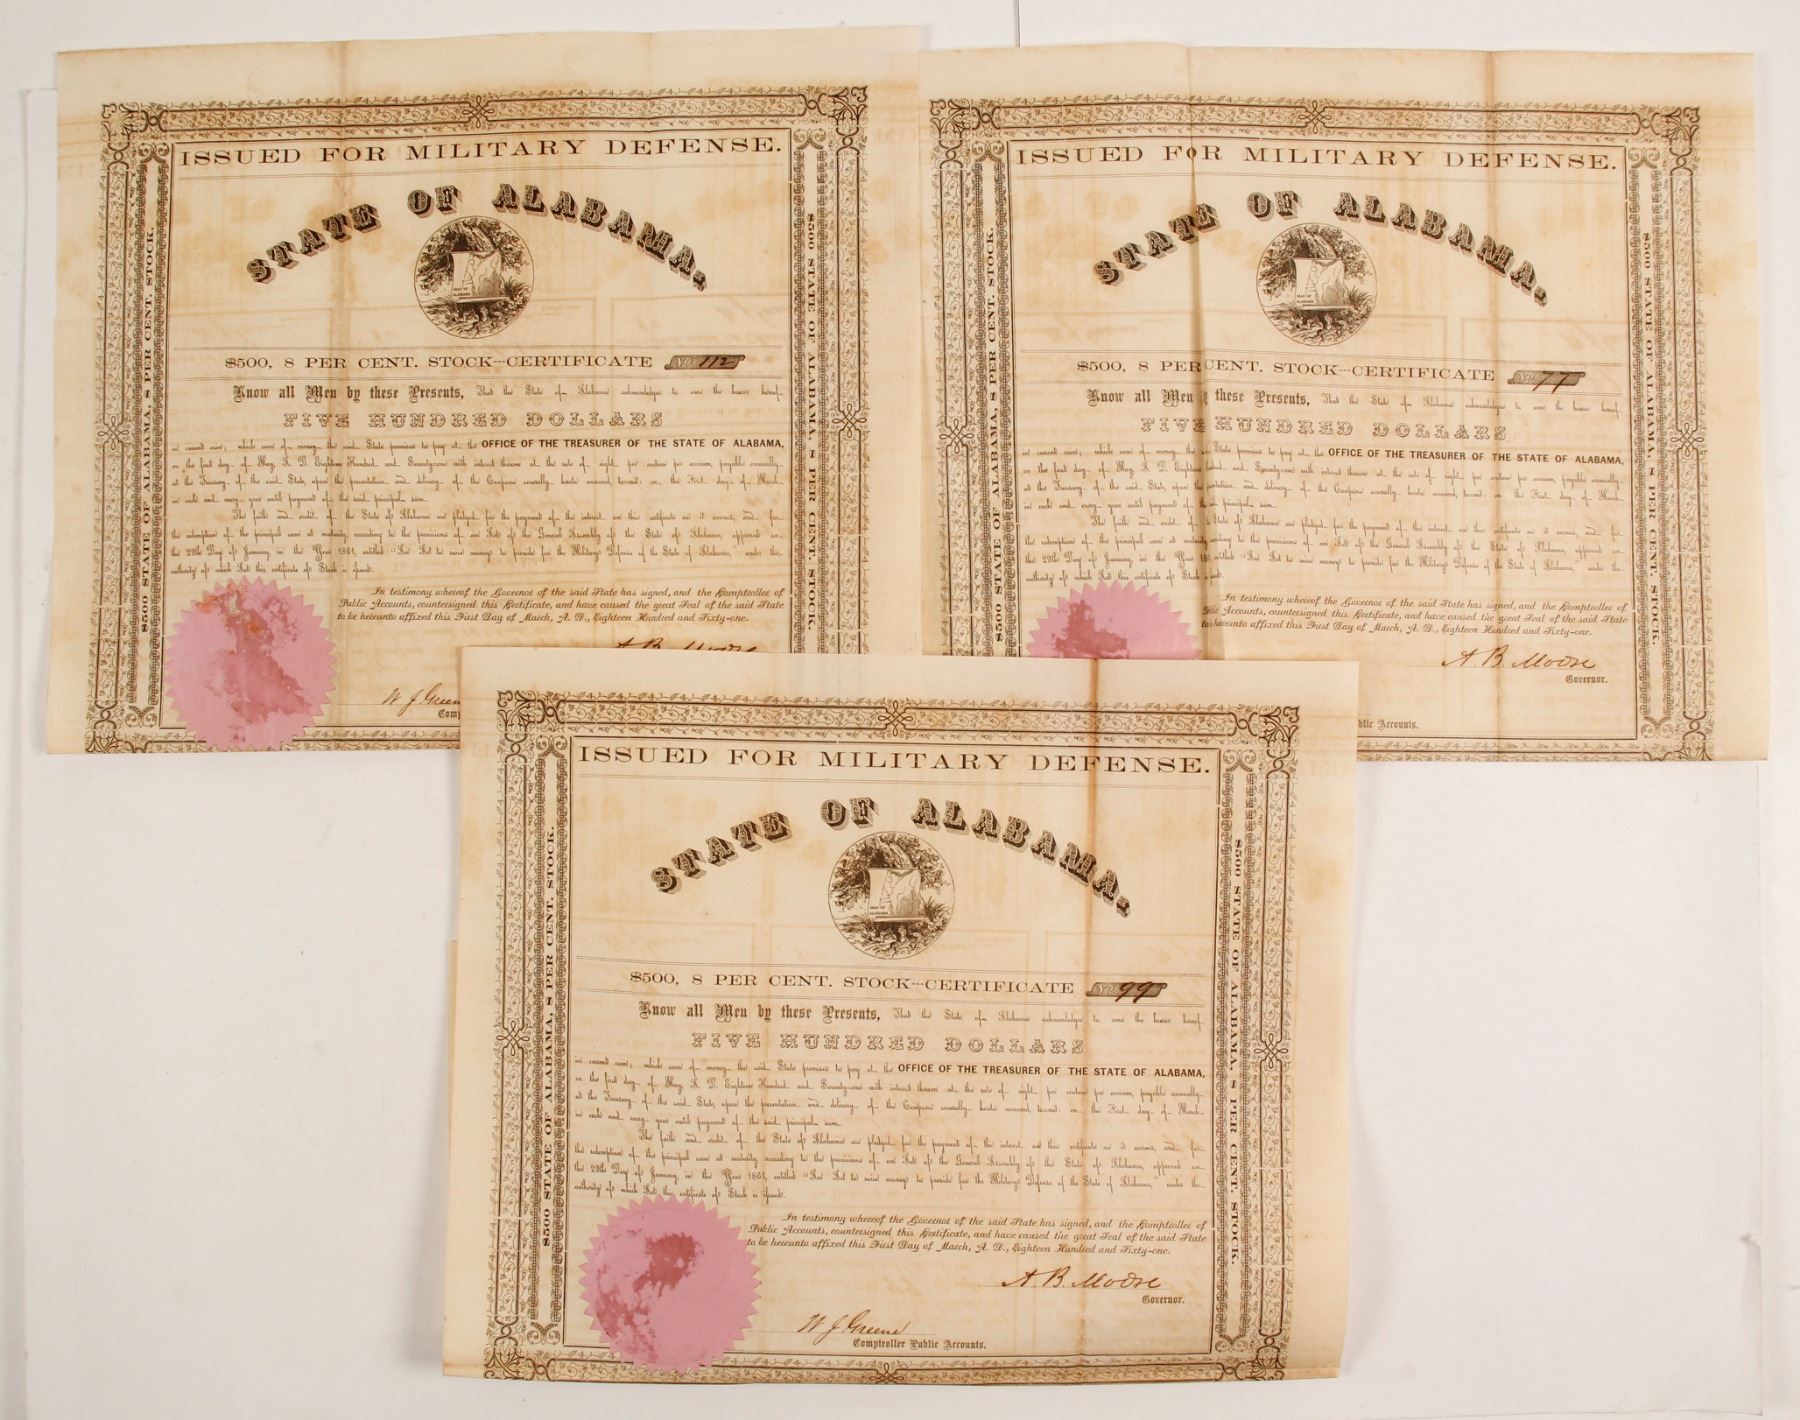 ISSUED FOR MILITARY DEFENSE.
STATE OF ALABAMA,
MAP OF
ALABAMA
$500, 8 PER CENT. STOCK---CERTIFICATE No 112
Know all Men by these Presents, That the State of Alabama acknowledges to owe the bearer hereof
FIVE HUNDRED DOLLARS
in current coin; which sum of money the said State promises to pay at the OFFICE OF THE TREASURER OF THE STATE OF ALABAMA,
on the first day of May, A. D. Eighteen Hundred and Seventy-one with interest thereon at the rate of eight per centum per annum, payable annually
at the Treasury of the said State, upon the presentation and delivery of the Coupons severally hereto annexed, to-wit: on the First day of March
in each and every year until payment of the said principal sum.
The faith and credit of the State of Alabama are pledged for the payment of the interest on this certificate as it accrues, and for
the redemption of the principal sum at maturity, according to the provisions of an Act of the General Assembly of the State of Alabama, approved on
the 29th Day of January, in the Year 1861, entitled "An Act to raise money to provide for the Military Defense of the State of Alabama," under the
authority of which Act this certificate of Stock is issued.
In testimony whereof the Governor of the said State has signed, and the Comptroller of
Public Accounts, countersigned this Certificate, and have caused the great Seal of the said State
to be hereunto affixed this First Day of March, A. D., Eighteen Hundred and Sixty-one.
A. B. Moore
W J Green
Comp
$500 STATE OF ALABAMA, 8 PER CENT. STOCK.
$500 STATE OF ALABAMA, 8 PER CENT. STOCK.
ISSUED FOR MILITARY DEFENSE.
STATE OF ALABAMA,
MAP OF
ALABAMA
$500, 8 PER CENT. STOCK---CERTIFICATE No 77
Know all Men these Presents, That the State of Alabama acknowledges to owe the bearer hereof
FIVE HUNDRED DOLLARS
in current coin; which sum of money the State promises to pay at the OFFICE OF THE TREASURER OF THE STATE OF ALABAMA,
on the first day of May, A. D. Eighteen and Seventy-one with interest thereon at the rate of eight per centum per annum, payable annually
at the Treasury of the said State, upon the and delivery of the Coupons severally hereto annexed, to-wit: on the First day of March
in each and every year until payment of the principal sum.
The faith and credit of State of Alabama are pledged for the payment of the interest on this certificate as it accrues, and for
the redemption of the principal sum at maturity, to the provisions of an Act of the General Assembly of the State of Alabama, approved on
the 29th Day of January, in the Year entitled "An Act to raise money to provide for the Military Defense of the State of Alabama," under the
authority of which Act this certificate of Stock
In testimony whereof the Governor of the said State has signed, and the Comptroller of
Accounts, countersigned this Certificate, and have caused the great Seal of the said State
to be hereunto affixed this First Day of March, A. D., Eighteen Hundred and Sixty-one.
A. B. Moore
Governor.
blic Accounts.
$500 STATE OF ALABAMA, 8 PER CENT. STOCK.
$500 STATE OF ALABAMA, 8 PER CENT. STOCK.
ISSUED FOR MILITARY DEFENSE.
STATE OF ALABAMA,
MAP OF
ALABAMA
$500, 8 PER CENT. STOCK---CERTIFICATE No 99
Know all Men by these Presents, That the State of Alabama acknowledges to owe the bearer hereof
FIVE HUNDRED DOLLARS
in current coin; which sum of money the said State promises to pay at the OFFICE OF THE TREASURER OF THE STATE OF ALABAMA,
on the first day of May, A. D. Eighteen Hundred and Seventy-one with interest thereon at the rate of eight per centum per annum, payable annually
at the Treasury of the said State, upon the presentation and delivery of the Coupons severally hereto annexed, to-wit: on the First day of March
in each and every year until payment of the said principal sum.
The faith and credit of the State of Alabama are pledged for the payment of the interest on this certificate as it accrues, and for
the redemption of the principal sum at maturity, according to the provisions of an Act of the General Assembly of the State of Alabama, approved on
the 29th Day of January, in the Year 1861, entitled "An Act to raise money to provide for the Military Defense of the State of Alabama," under the
authority of which Act this certificate of Stock is issued.
In testimony whereof the Governor of the said State has signed, and the Comptroller of
Public Accounts, countersigned this Certificate, and have caused the great Seal of the said State
to be hereunto affixed this First Day of March, A. D., Eighteen Hundred and Sixty-one.
A. B. Moore
Governor.
W J Greene
Comptroller Public Accounts.
$500 STATE OF ALABAMA, 8 PER CENT. STOCK.
$500 STATE OF ALABAMA, 8 PER CENT. STOCK.